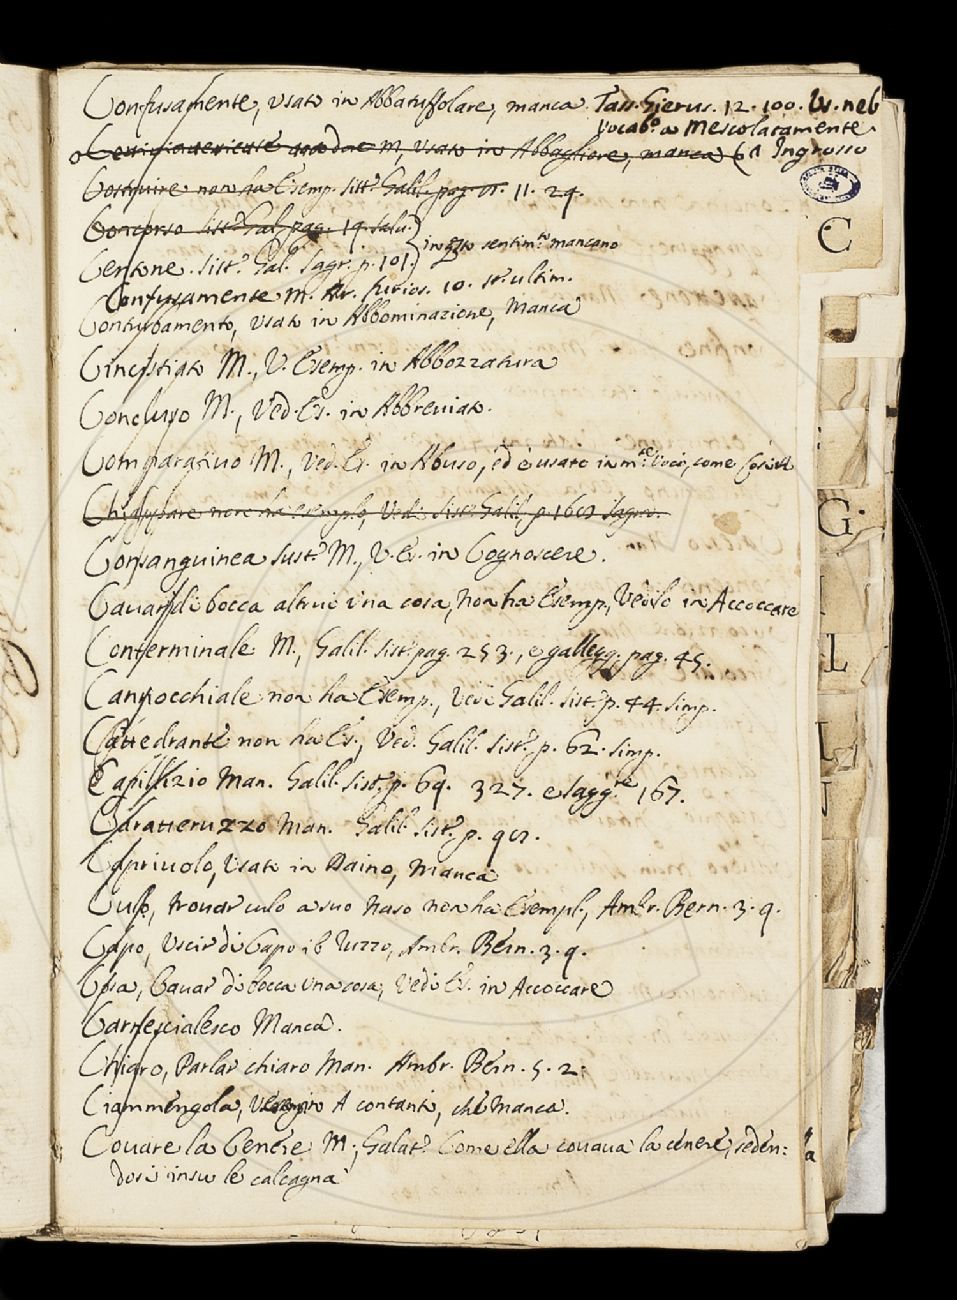 Confusamente, usato in Abbatuffolare, manca. Tass. Gierus. 12. 100. Us. nel
Vocab.o a Mescolatamente
M, usato in Abbagliore, manca 61 Ingrosso
Costruire non ha Esemp. sist.o Galil. pag. 11. 24.
Concorso sist.o Gal. pag. 19. Salu.
in q.sto sentim.to mancano
Centone. sist.o Gal. Sagr. p. 101.
Confusamente M. Ar. furios. 10. st. ultim.
Conturbamento, usato in Abbominazione, Manca
C
Cincistiato M., V. Esemp. in Abbozzatura
Concluso M., Ved. Es. in Abbreviato.
Comparativo M., Ved. Es. in Abuso, ed è usato in m.te Voci, come
G
Chiosare non ha esemplo, Vedi Sist. Galil. p. Sagr.
Consanguinea sust.o M., V. Es. in Cognoscere.
Cavar di bocca altrui una cosa, Non ha Esemp, Vedilo in Accoccare
I
Conterminale M., Galil. sist. pag. 253., e gallegg. pag. 45.
L
Cannocchiale non ha Esemp., Vedi Galil. sist. p. 44. simp.
Cattedrante non ha Es., Ved. Galil. sist.o p. 62. simp.
Capillizio Man. Galil. sist.o p. 69. 327. e Sagg.re 167.
Caratteruzzo Man. Galil. sist.o p.
Caprivolo, Usato in Daino, Manca
Culo, trovar culo a suo Naso non ha Esempl, Ambr. Bern. 3. 9.
Capo, Uscir di Capo il Ruzzo, Ambr. Bern. 3. 9.
Cosa, Cavar di bocca una cosa, Vedi Es. in Accoccare
Carnescialesco Manca.
Chiaro, Parlar chiaro Man. Ambr. Bern. 5. 2.
Ciammengola, A contanti, che Manca.
Covare la Cenere M., Galat.o Come ella covava la cenere, seden=
dosi insu le calcagna